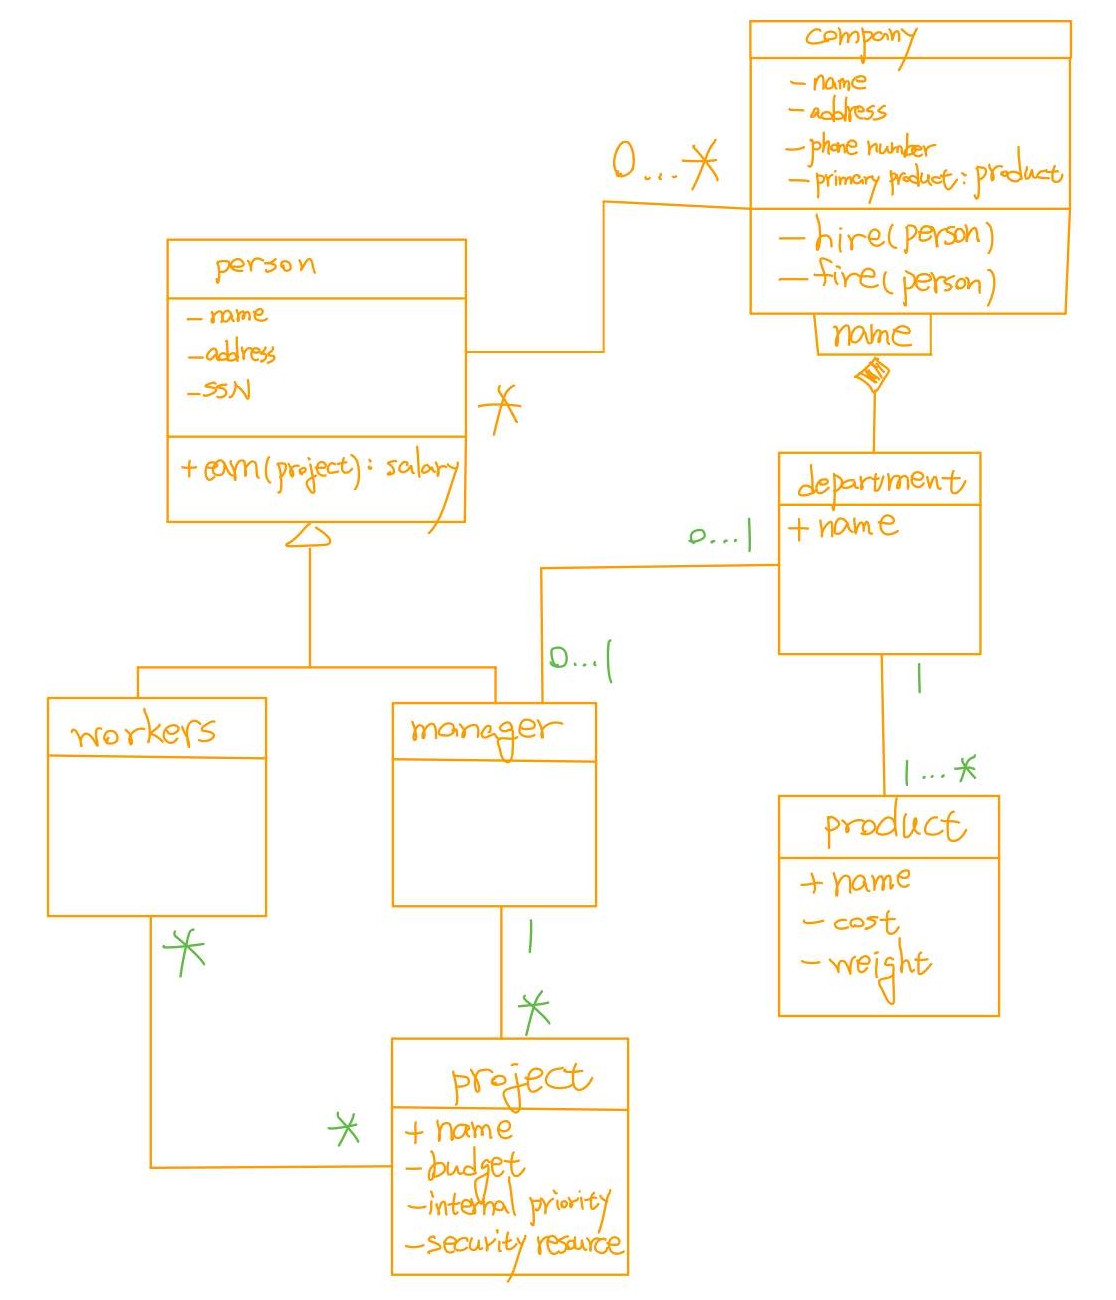 company
- name
- address
- phone number
- primary product: product
- hire(person)
- fire(person)
name
0...*
person
- name
- address
- SSN
+ earn(project): salary
*
department
+ name
0...1
0...1
1
1...*
workers
manager
product
+ name
- cost
- weight
*
1
*
*
project
+ name
- budget
- internal priority
- security resource